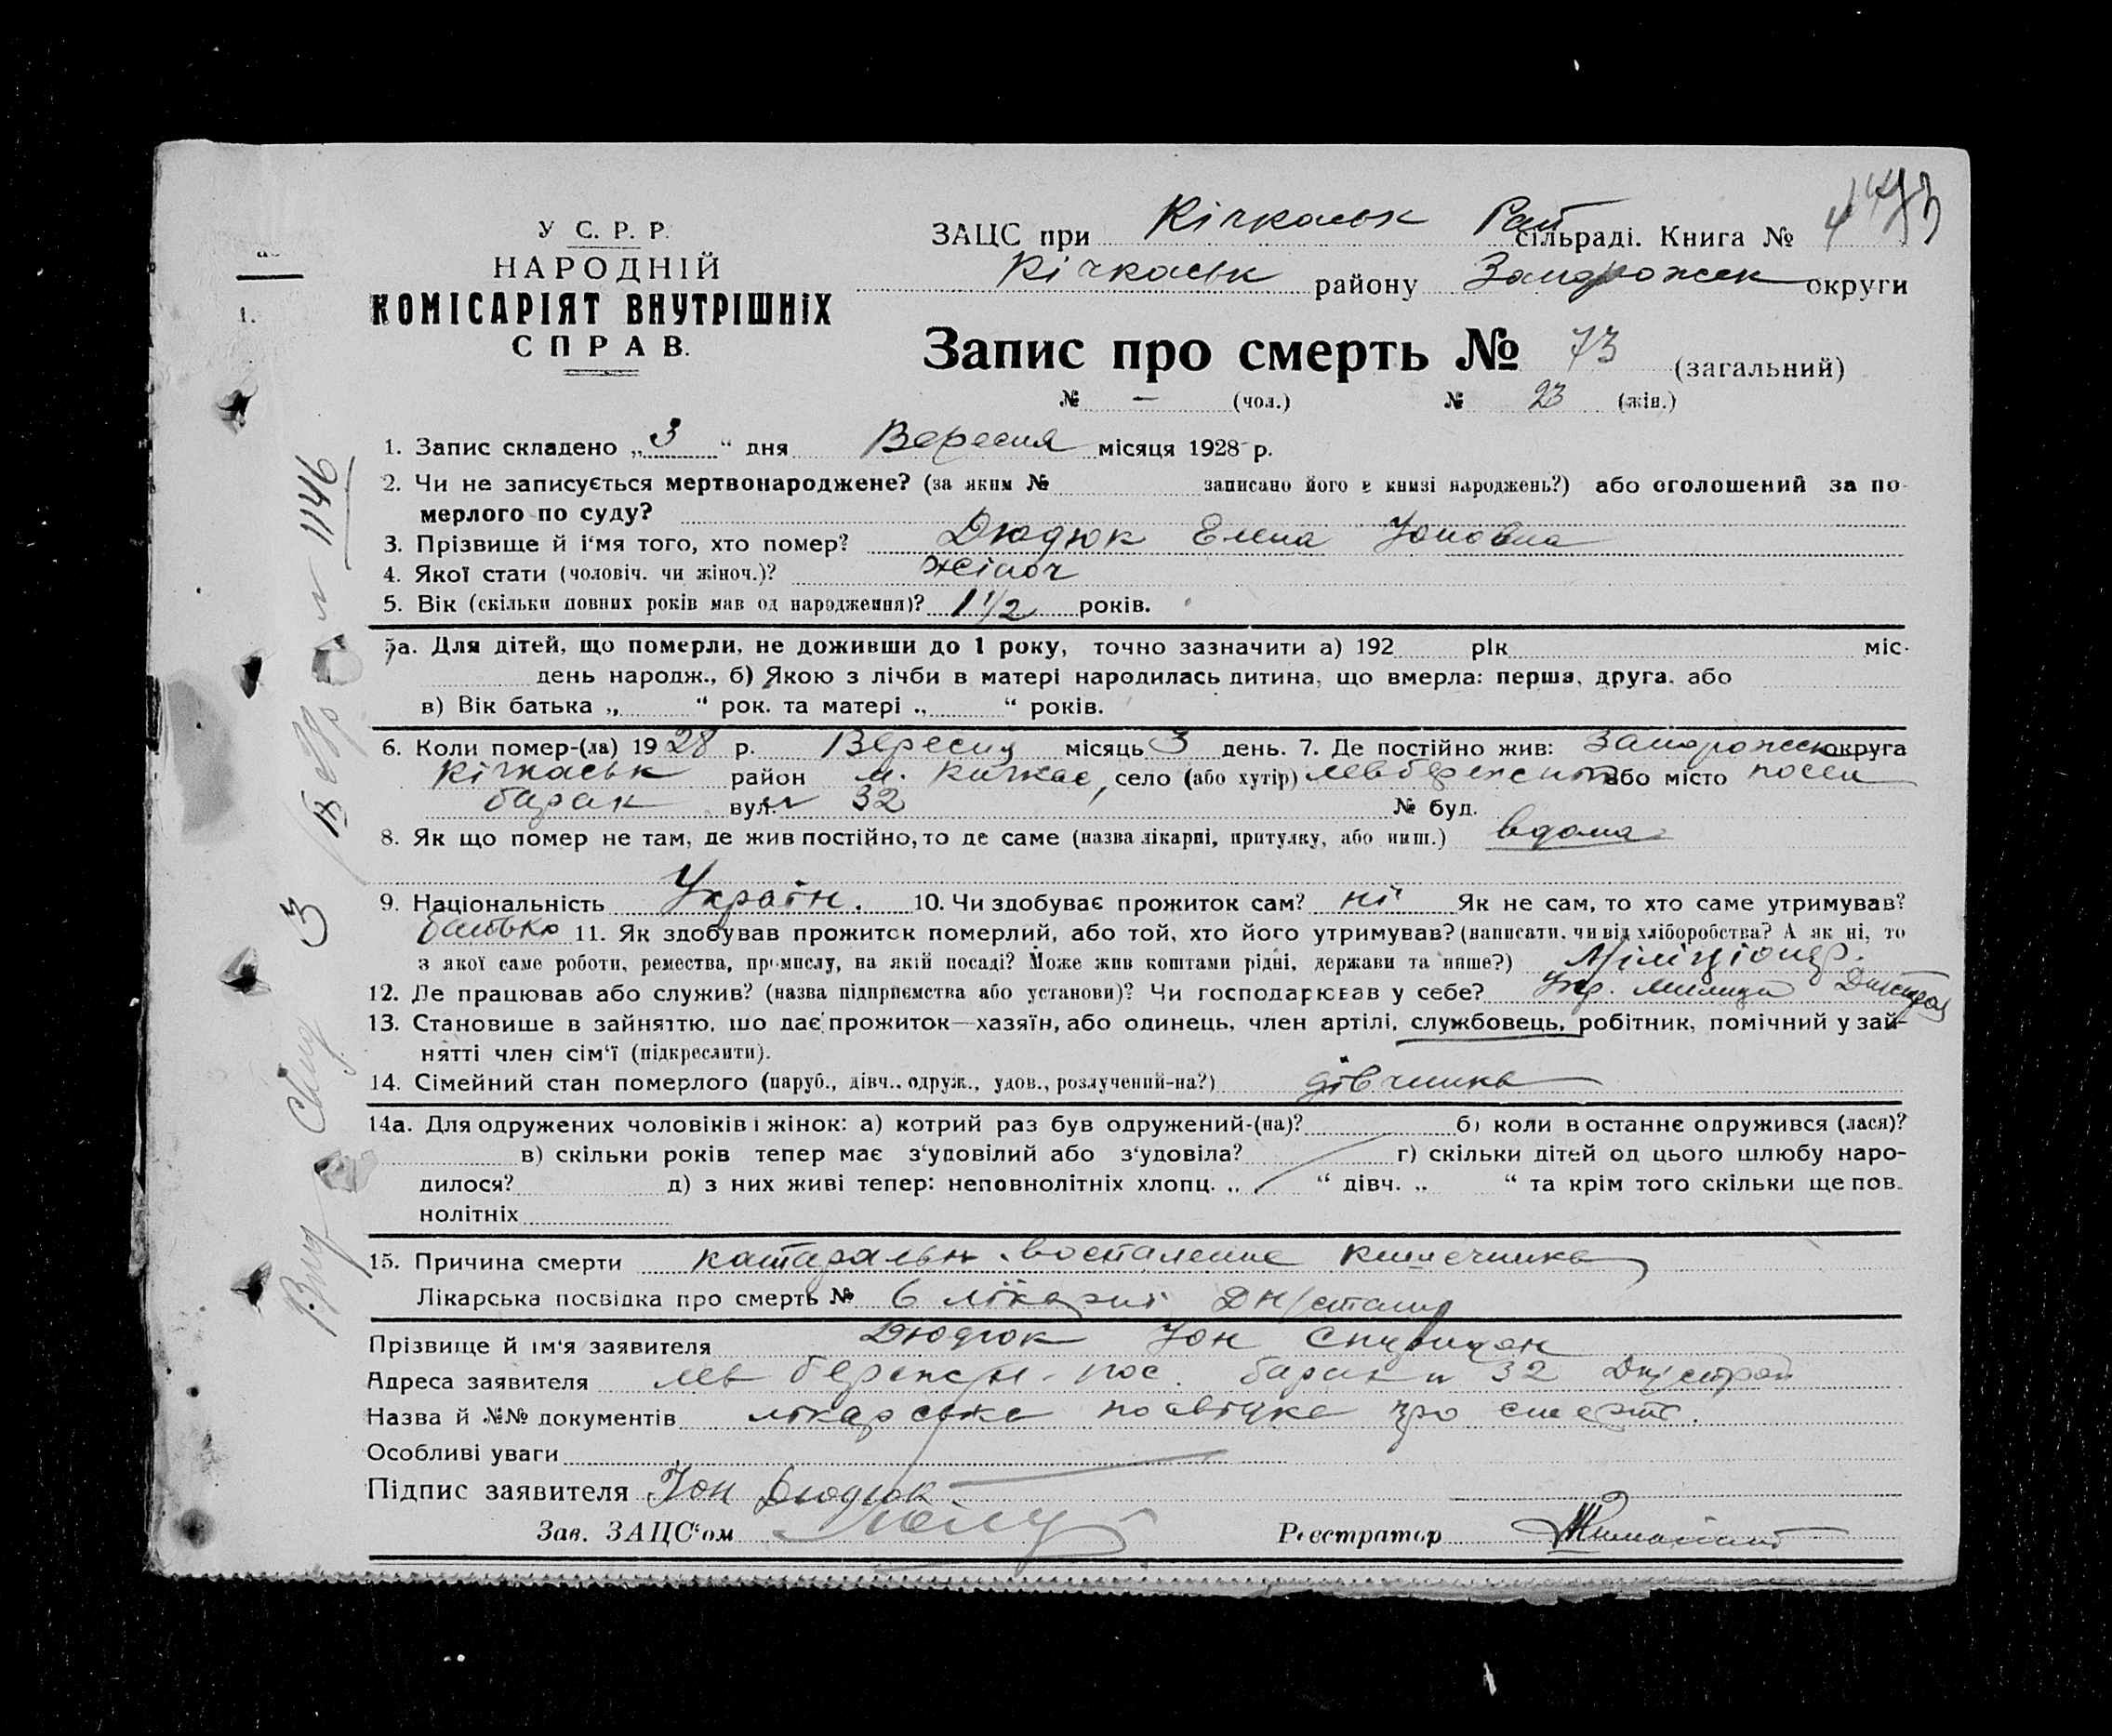 У С. Р. Р.
НАРОДНІЙ
КОМІСАРІЯТ ВНУТРІШНІХ
СПРАВ.
ЗАЦС при Кічкаськ Рай сільраді. Книга №
Кічкаськ району Запорожск округи
Запис про смерть № 73 (загальний)
№ — (чол.) № 23 (жін.)
1. Запис складено „3“ дня Вересня місяця 1928 р.
2. Чи не записується мертвонароджене? (за яким № записано його в книзі народжень?) або оголошений за по-
мерлого по суду?
3. Прізвище й і'мя того, хто помер? Дюдюк Елена Йоновна
4. Якої стати (чоловіч. чи жіноч.)? жіноч
5. Вік (скільки повних років мав од народження)? 1 1/2 років.
5а. Для дітей, що померли, не доживши до 1 року, точно зазначити а) 192 рік міс.
день народж., б) Якою з лічби в матері народилась дитина, що вмерла: перша, друга, або
в) Вік батька „ “ рок. та матері „ “ років.
6. Коли помер-(ла) 1928 р. Вересня місяць 3 день. 7. Де постійно жив: Запорожск округа
Кічкаськ район м. Кичкас, село (або хутір) або місто посел
барак вул. № 32 № буд.
8. Як що помер не там, де жив постійно, то де саме (назва лікарні, притулку, або инш.) вдома
9. Національність Україн. 10. Чи здобуває прожиток сам? ні Як не сам, то хто саме утримував?
батько 11. Як здобував прожиток померлий, або той, хто його утримував? (написати, чи від хліборобства? А як ні, то
з якої саме роботи, ремества, промислу, на якій посаді? Може жив коштами рідні, держави та инше?) Міліціонер.
12. Де працював або служив? (назва підприємства або установи)? Чи господарював у себе? Упр. милиции
13. Становище в зайняттю, що дає прожиток—хазяїн, або одинець, член артілі, службовець, робітник, помічний у зай-
нятті член сім'ї (підкреслити).
14. Сімейний стан померлого (паруб., дівч., одруж., удов., розлучений-на?) дівчинка
14а. Для одружених чоловіків і жінок: а) котрий раз був одружений-(на)? б) коли в останнє одружився (лася)?
в) скільки років тепер має з'удовілий або з'удовіла? г) скільки дітей од цього шлюбу наро-
дилося? д) з них живі тепер: неповнолітніх хлопц. „ “ дівч. „ “ та крім того скільки ще пов-
нолітніх
15. Причина смерти катаральн. воспаление кишечника
Лікарська посвідка про смерть № 6 лікарні
Прізвище й ім'я заявителя Дюдюк Йон
Адреса заявителя лев бережн. пос. барак № 32 Днiстрой
Назва й №№ документів лікарська посвідка про смерть.
Особливі уваги
Підпис заявителя Йон Дюдюк
Зав. ЗАЦС'ом Реєстратор
№ 1146
3
1.